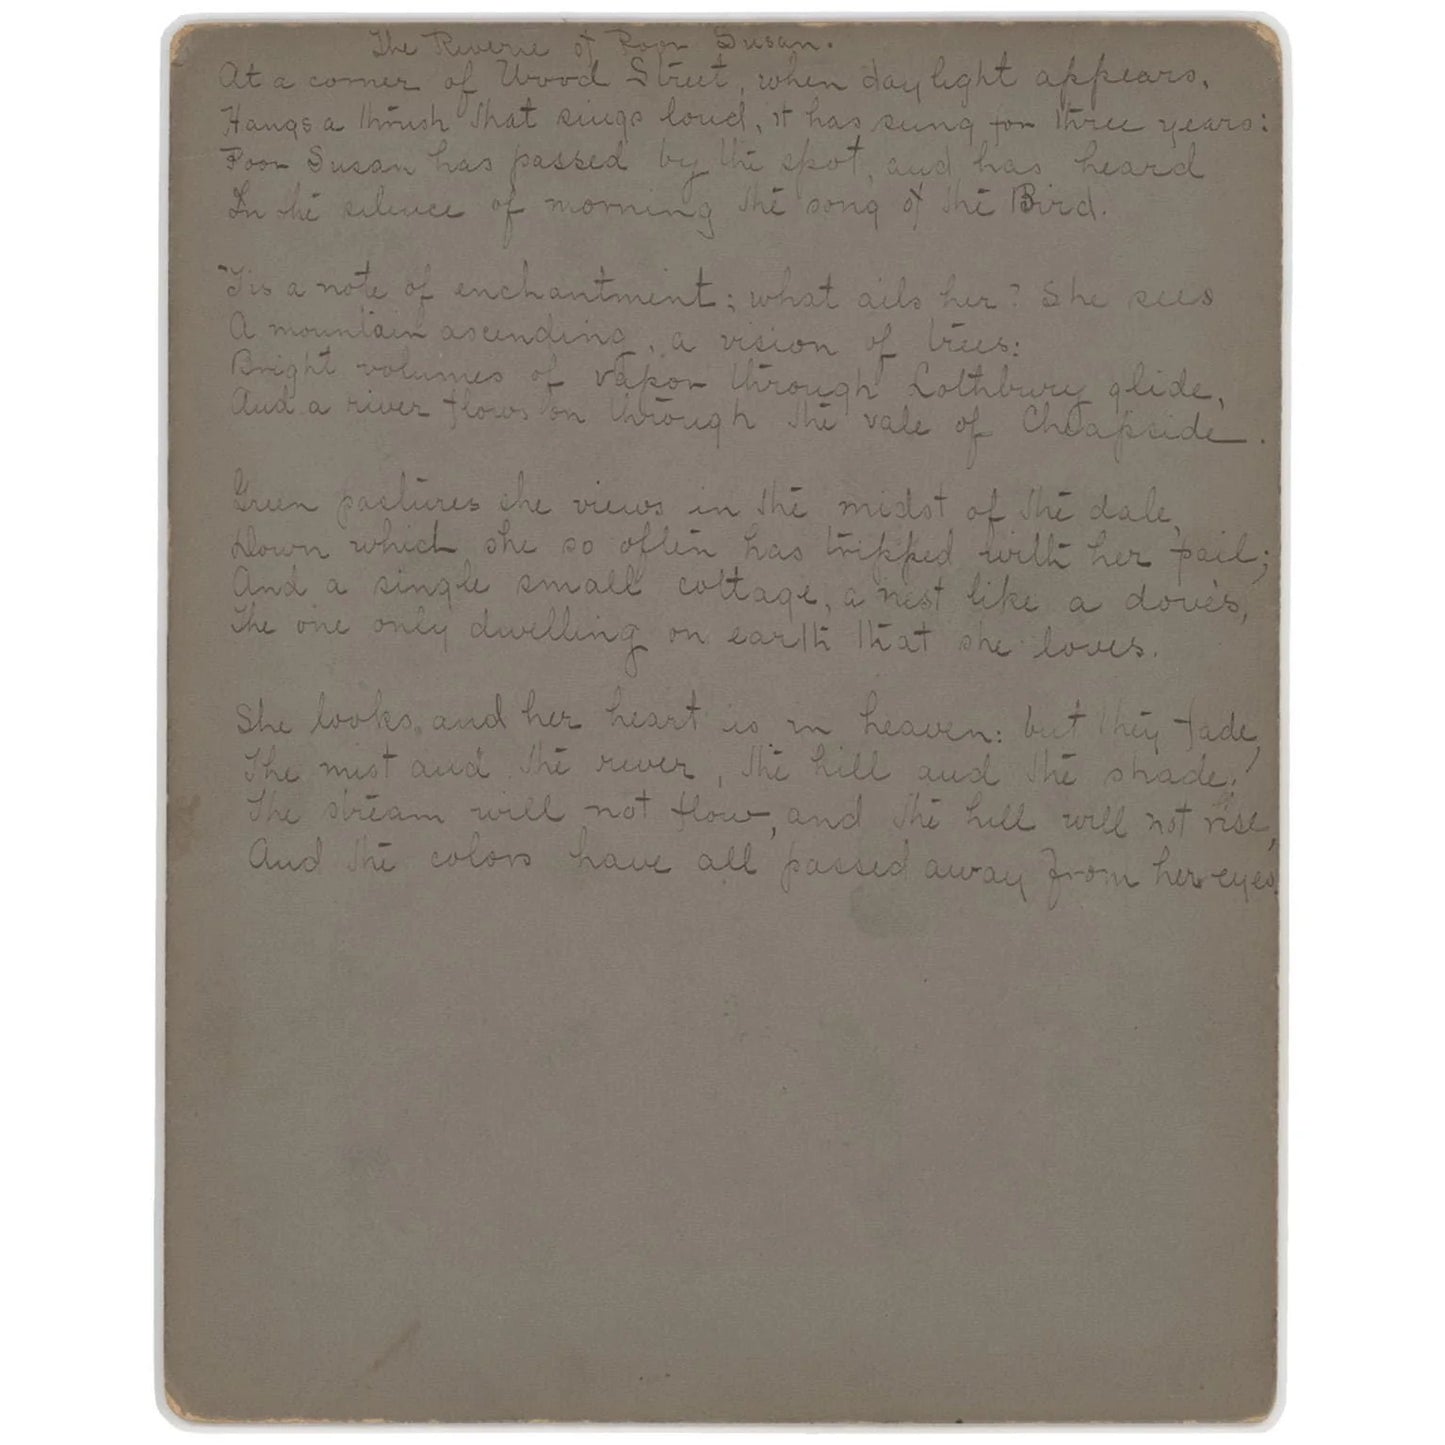 The Reverie of Poor Susan.
At a corner of Wood Street, when daylight appears,
Hangs a thrush that sings loud, it has sung for three years:
Poor Susan has passed by the spot, and has heard
In the silence of morning the song of the Bird.
'Tis a note of enchantment; what ails her? She sees
A mountain ascending, a vision of trees:
Bright volumes of vapor through Lothbury glide,
And a river flows on through the vale of Cheapside.
Green pastures she views in the midst of the dale,
Down which she so often has tripped with her pail;
And a single small cottage, a nest like a dove's,
The one only dwelling on earth that she loves.
She looks, and her heart is in heaven: but they fade,
The mist and the river, the hill and the shade;
The stream will not flow, and the hill will not rise,
And the colors have all passed away from her eyes.